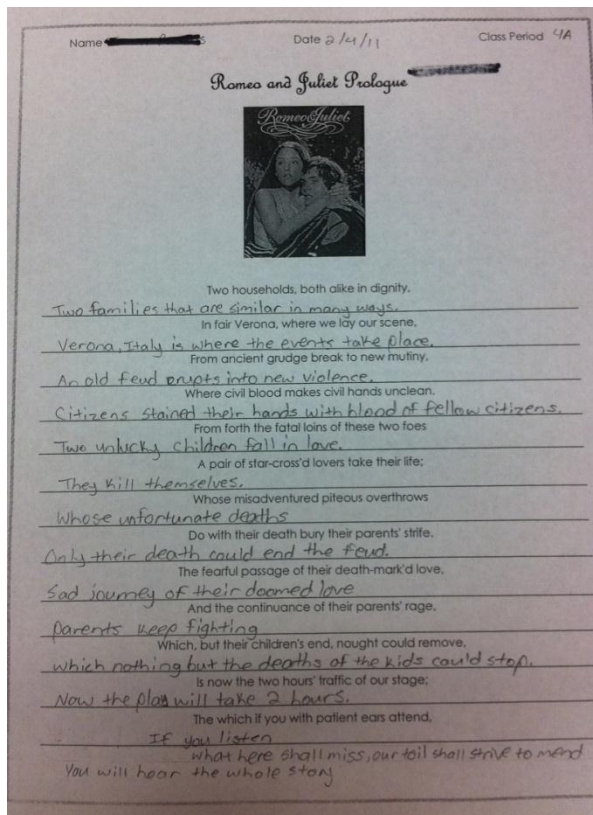 Name Date 2/4/11 Class Period 4A
Romeo and Juliet Prologue
Romeo & Juliet
Two households, both alike in dignity,
Two families that are similar in many ways.
In fair Verona, where we lay our scene,
Verona, Italy is where the events take place.
From ancient grudge break to new mutiny,
An old feud erupts into new violence.
Where civil blood makes civil hands unclean.
Citizens stained their hands with blood of fellow citizens.
From forth the fatal loins of these two foes
Two unlucky children fall in love.
A pair of star-cross'd lovers take their life;
They kill themselves.
Whose misadventured piteous overthrows
Whose unfortunate deaths
Do with their death bury their parents' strife.
Only their death could end the feud.
The fearful passage of their death-mark'd love,
Sad journey of their doomed love
And the continuance of their parents' rage,
Parents keep fighting
Which, but their children's end, nought could remove,
which nothing but the deaths of the kids could stop.
Is now the two hours' traffic of our stage;
Now the play will take 2 hours.
The which if you with patient ears attend,
If you listen
what here shall miss, our toil shall strive to mend
You will hear the whole story